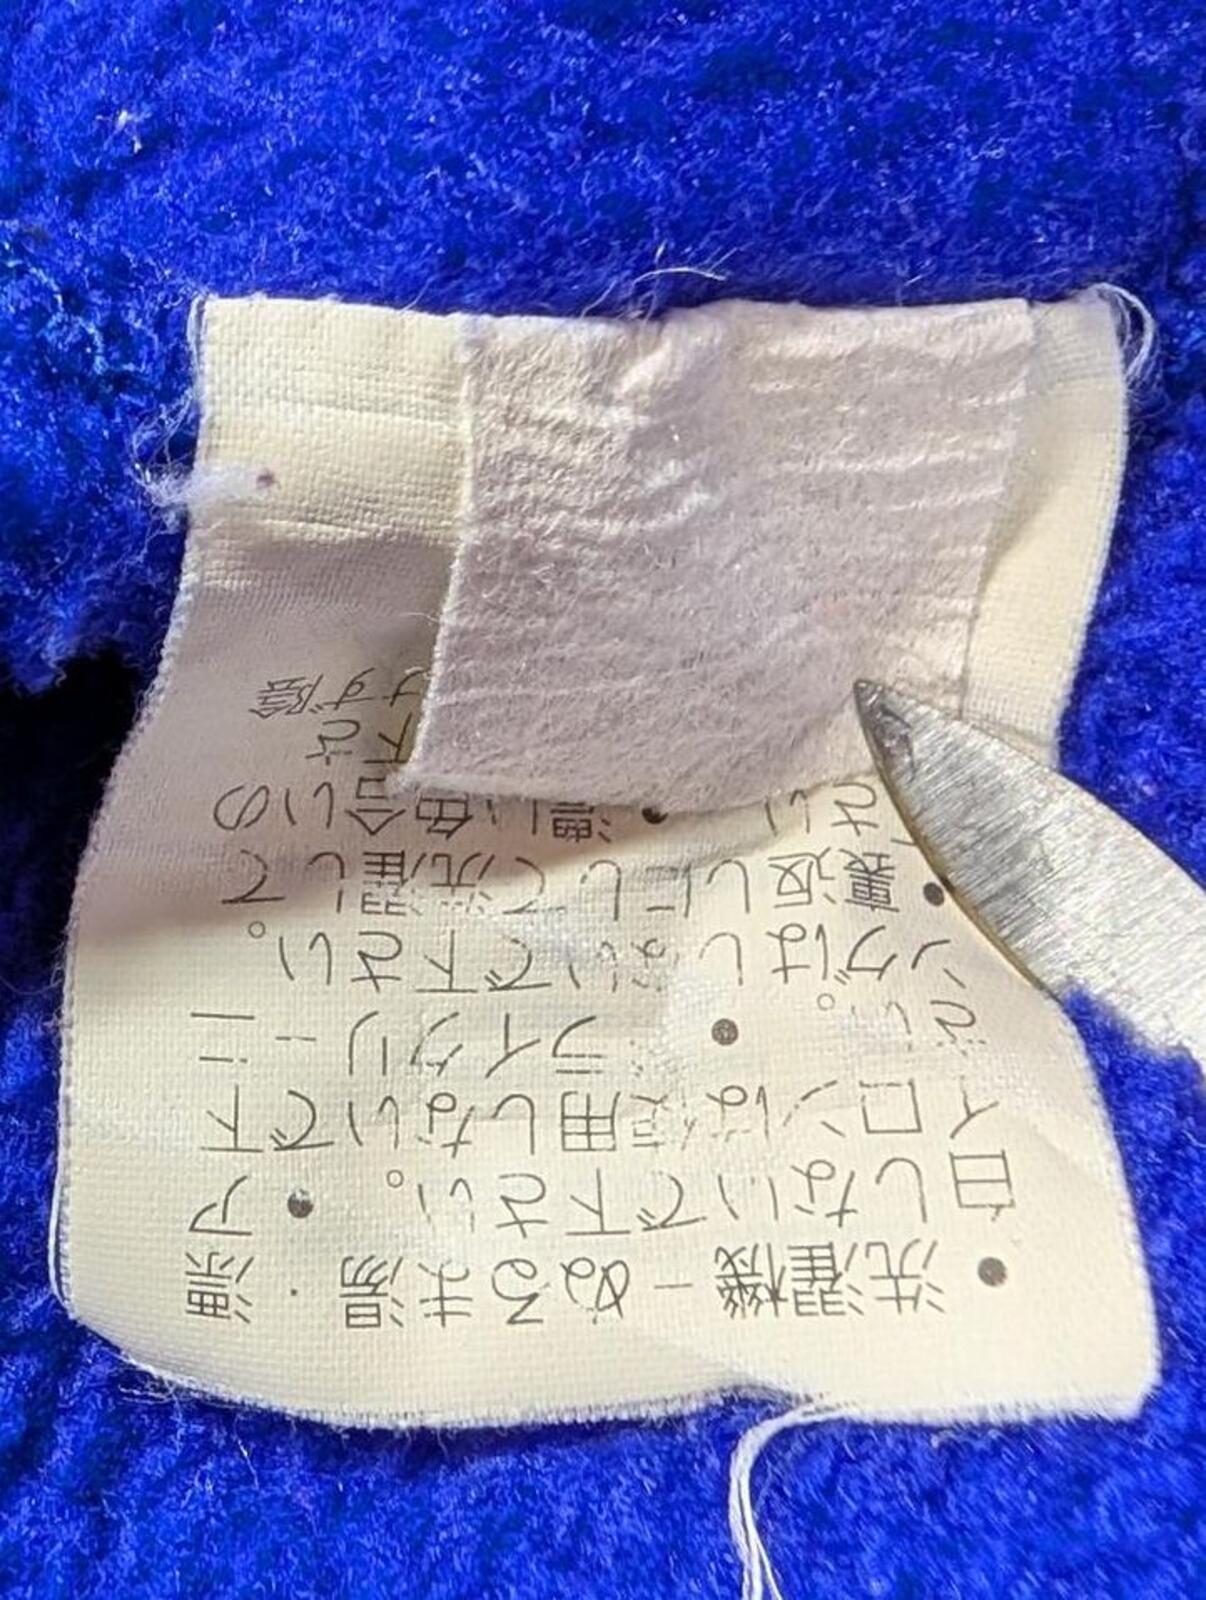 ●洗濯機－ぬるま湯・漂
白しないで下さい。●ア
イロンは使用しないで下
さい。●ドライクリーニ
ングはしないで下さい。
●裏返しにして洗濯して
さい ●濃い色合いの
下さ
けず陰